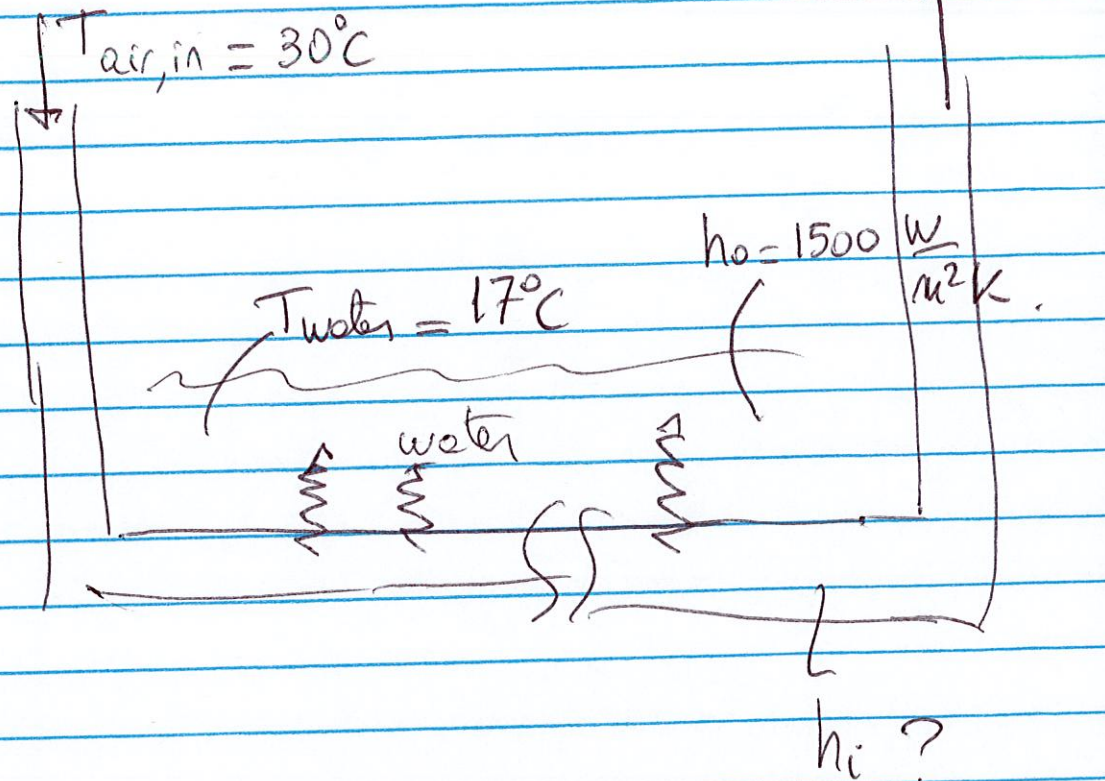 T air,in = 30°C
ho = 1500 W/m²K.
Twater = 17°C
water
hi ?